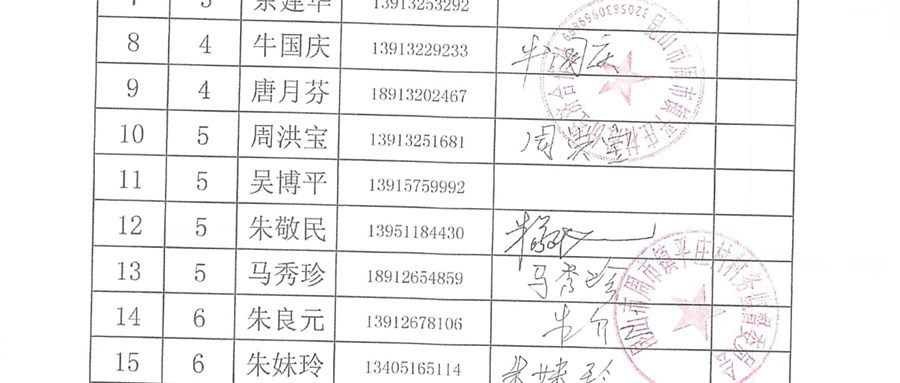 8 4 牛国庆 13913229233 牛国庆
9 4 唐月芬 18913202467
10 5 周洪宝 13913251681 周洪宝
11 5 吴博平 13915759992
12 5 朱敬民 13951184430
13 5 马秀珍 18912654859 马秀珍
14 6 朱良元 13912678106
15 6 朱妹玲 13405165114 朱妹玲
昆山市周市镇平庄村村务监督委员会